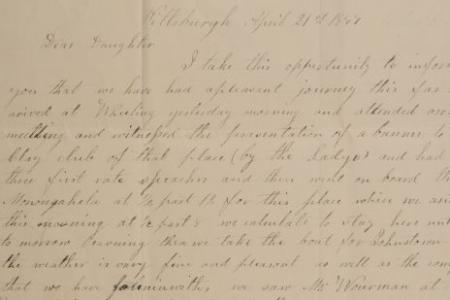 Pittsburgh April 21st 1844
Dear Daughter
I take this opportunity to inform
you that we have had a pleasant journey thus far
arived at Wheeling yesterday morning and attended
meetting and witnessed the presentation of a banner to
Clay club of that place (by the Ladys) and had
three first rate speaches and then went on board the
Monongahela at ½ past 12 for this place where we
this morning at ½ past 8 we calculate to stay here
to morrow evening then we take the boat for Johnstown
the weather is very fine and pleasant as well as the
that we have we saw Mr at